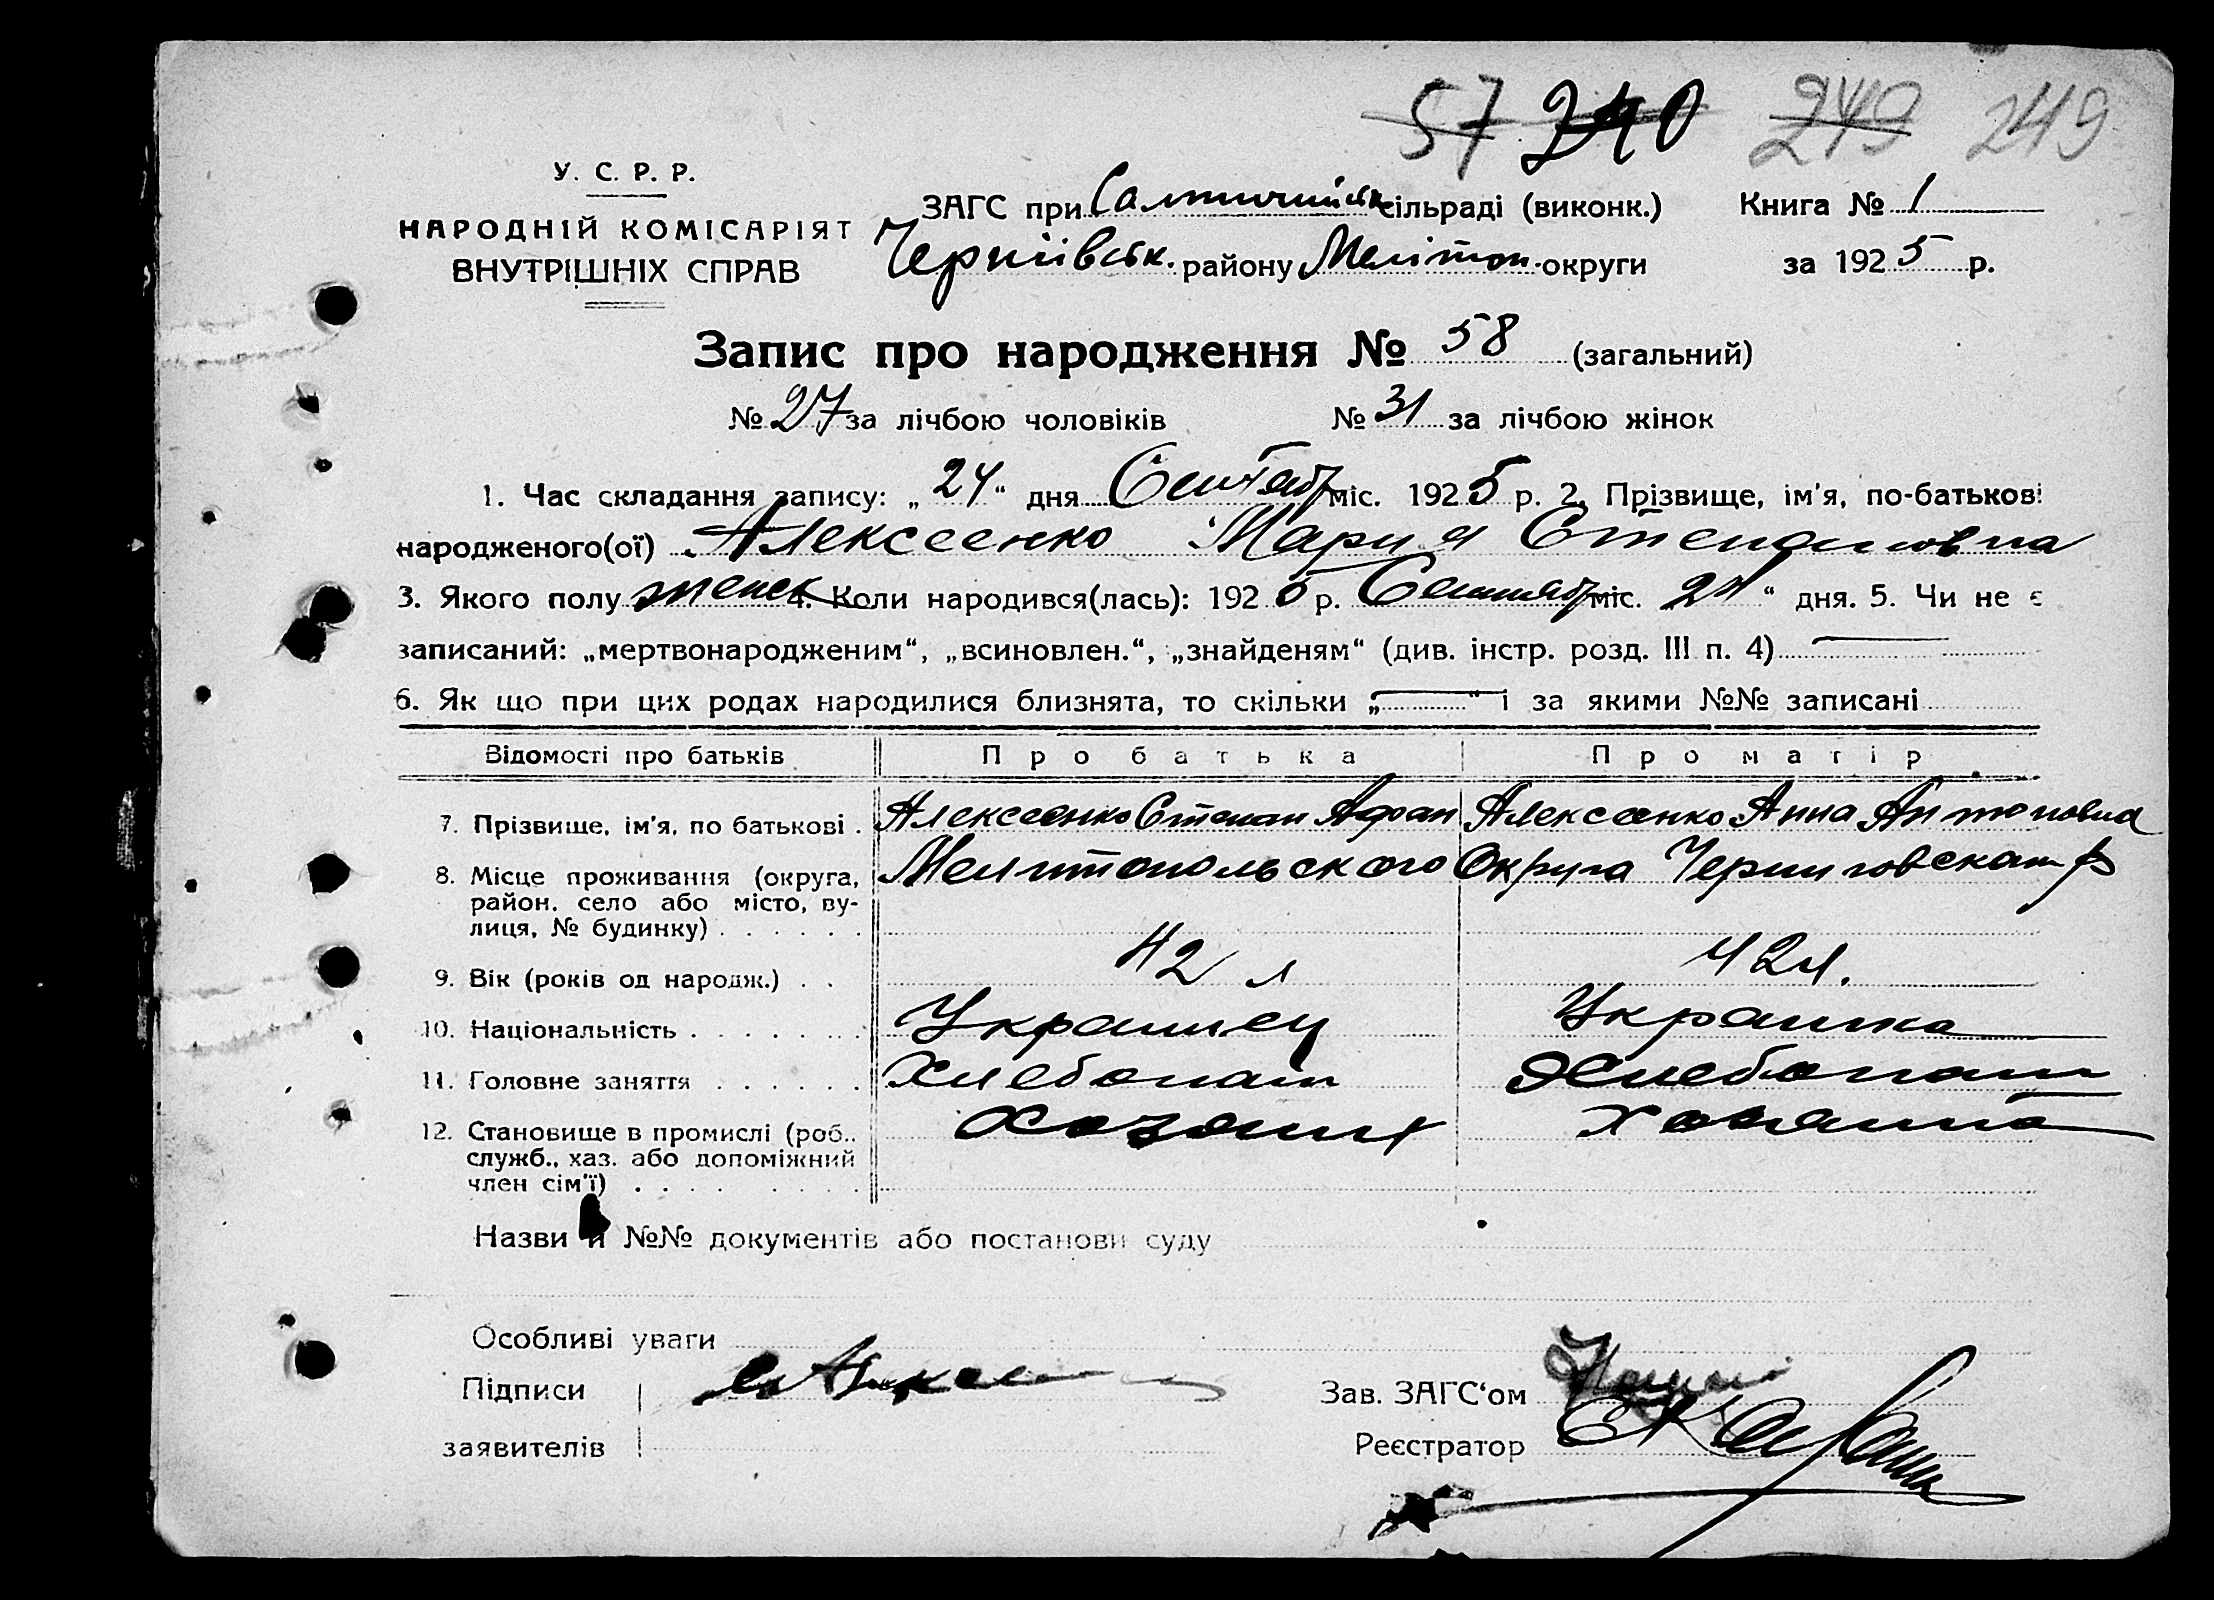 57 240 249 249
У. С. Р. Р.
НАРОДНІЙ КОМІСАРІЯТ
ВНУТРІШНІХ СПРАВ
ЗАГС при Салтичийськ сільраді (виконк.) Книга № 1
Чернівськ. району Мелітоп. округи за 1925 р.
Запис про народження № 58 (загальний)
№ 27 за лічбою чоловіків № 31 за лічбою жінок
1. Час складання запису: „24“ дня Сентябр міс. 1925 р. 2. Прізвище, ім'я, по-батькові
народженого(ої) Алексеенко Мария Степановна
3. Якого полу женск 4. Коли народився(лась): 1925 р. Сентябр міс. 24“ дня. 5. Чи не є
записаний: „мертвонародженим“, „всиновлен.“, „знайденям“ (див. інстр. розд. III п. 4)
6. Як що при цих родах народилися близнята, то скільки „ “ і за якими №№ записані
Відомості про батьків Про батька Про матір
7. Прізвище, ім'я, по батькові . Алексеенко Степан Афан Алексеенко Анна Антоновна
8. Місце проживання (округа, Мелитопольского Округа Черниговскаго р
район, село або місто, ву-
лиця, № будинку) . . . . . .
9. Вік (років од народж.) . . 42 л 42 л.
10. Національність . . . . . . . Украинец Украинка
11. Головне заняття . . . . . . Хлебопаш Хлебопаш
12. Становище в промислі (роб., Хозяин Хозяина
служб., хаз. або допоміжний
член сім'ї) . . . . . . . .
Назви й №№ документів або постанови суду
Особливі уваги
Підписи
Зав. ЗАГС'ом
заявителів
Реєстратор